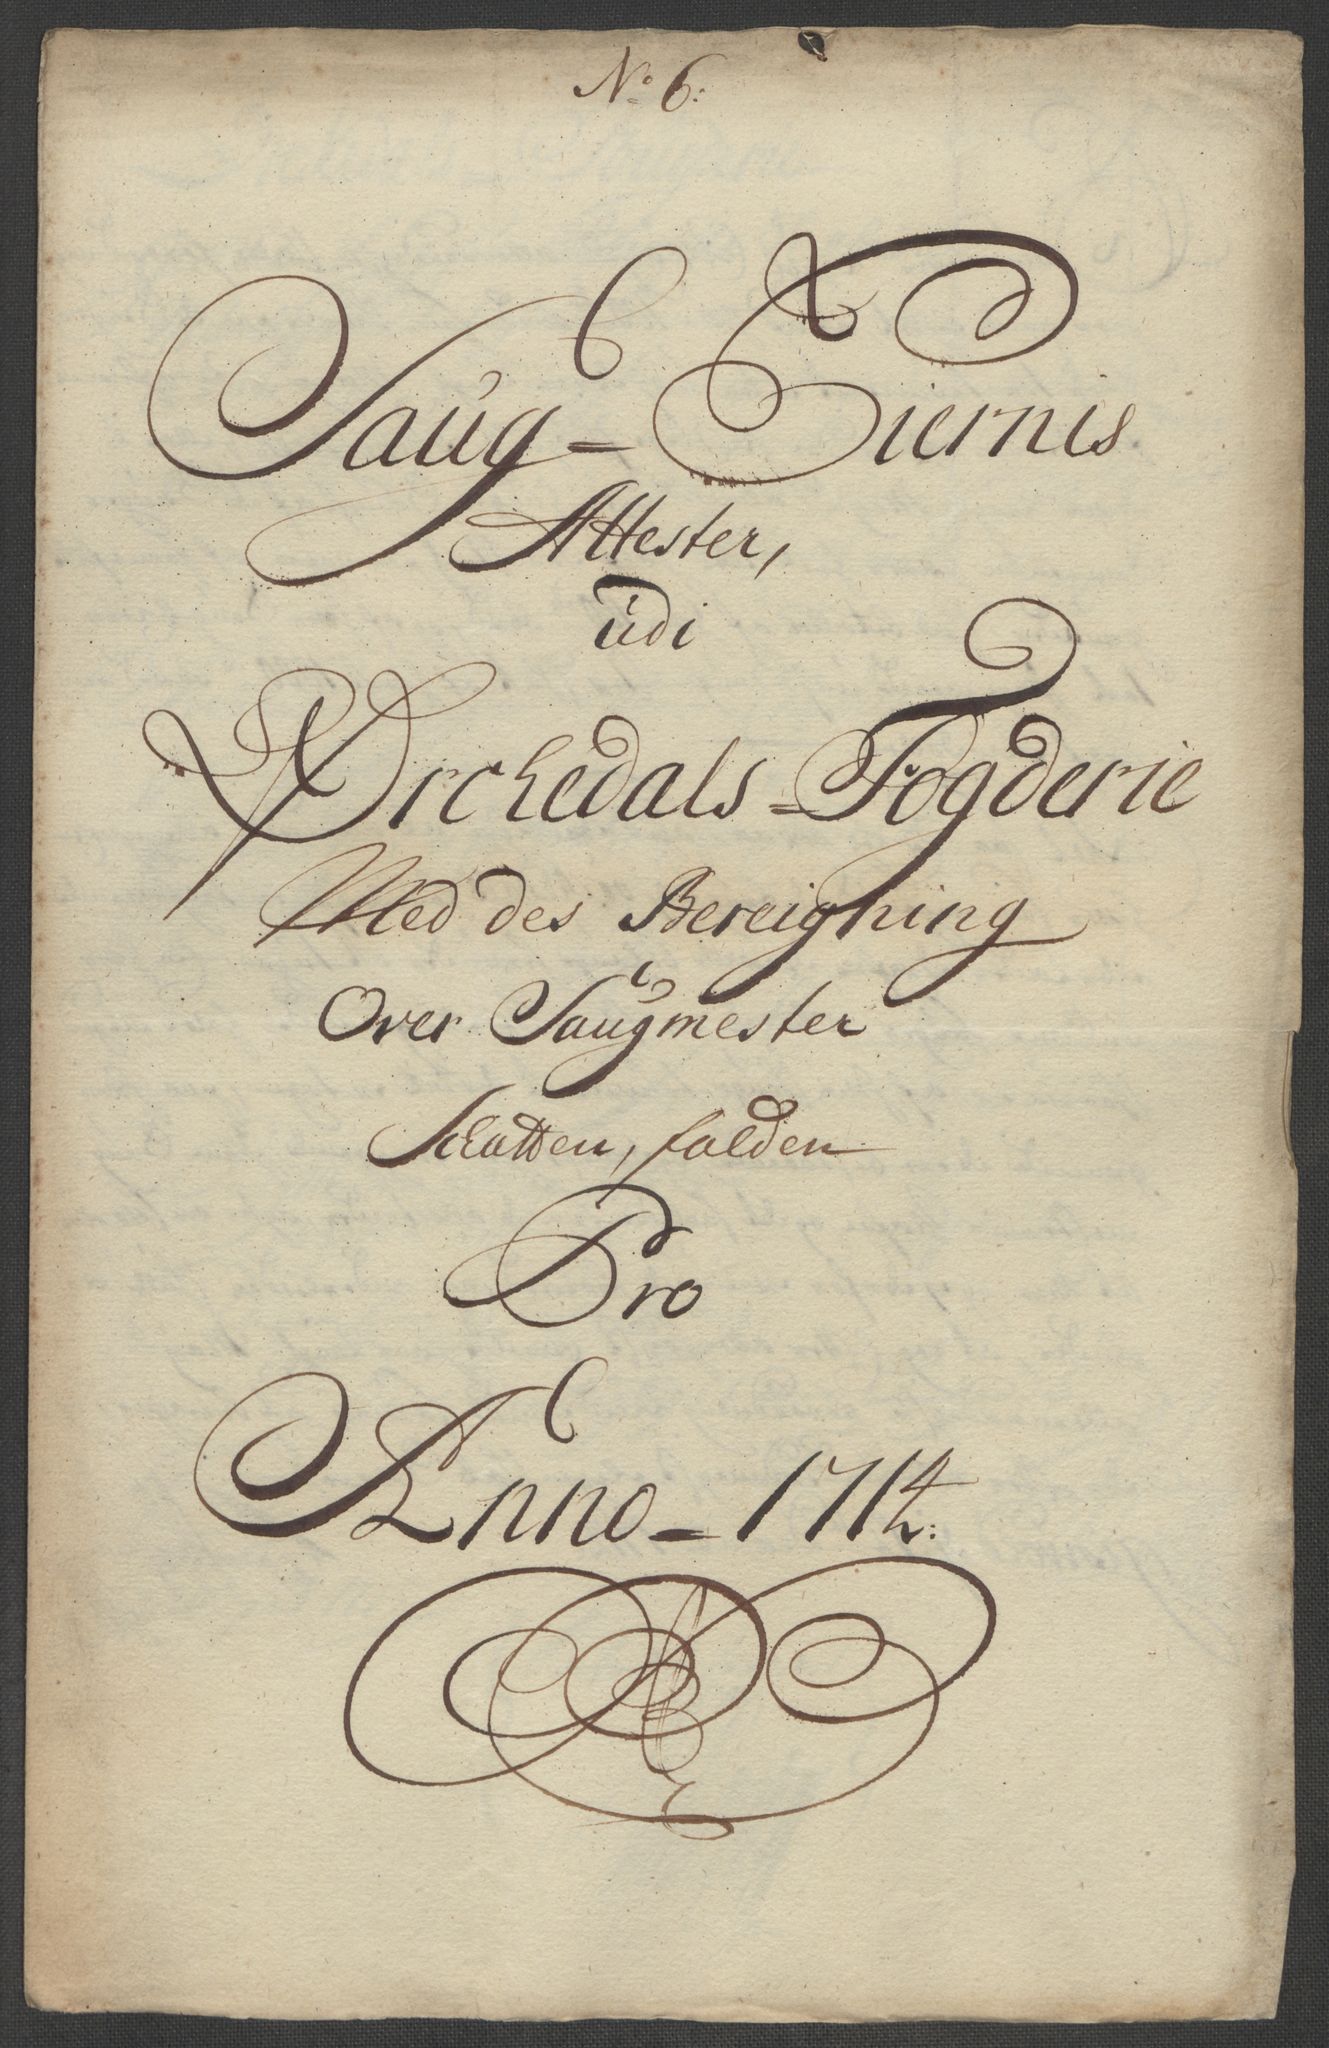 No 6:
Saug=Eiernis
Attester,
udi
Orchedals=Fogderie
Med des Bereigning
Over Saugmester
Schatten, falden
Pro
Anno=1714: